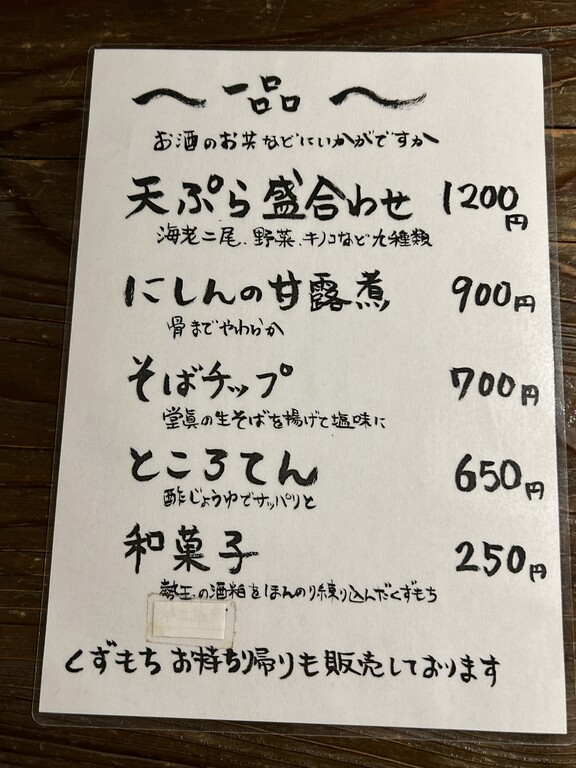 〜一品〜
お酒のお共などにいかがですか
天ぷら盛合わせ 1200円
海老二尾、野菜、キノコなど九種類
にしんの甘露煮 900円
骨までやわらか
そばチップ 700円
堂眞の生そばを揚げて塩味に
ところてん 650円
酢じょうゆでサッパリと
和菓子 250円
勢王の酒粕をほんのり練り込んだくずもち
くずもち お持ち帰りも販売しております